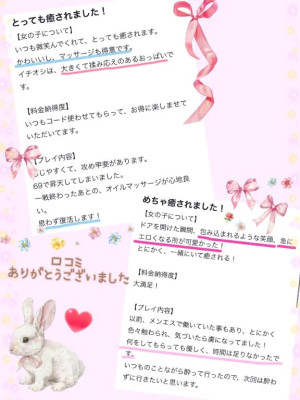 とっても癒されました！
【女の子について】
いつも微笑んでくれて、とっても癒されます。
かわいいし、マッサージも得意です。
イチオシは、大きくて揉み応えのあるおっぱいで
す。
【料金納得度】
いつもコード使わせてもらって、お得に楽しませて
いただいてます。
【プレイ内容】
感じやすくて、攻め甲斐があります。
69で昇天してしまいました。
一戦終わったあとの、オイルマッサージが心地良
い。
思わず復活します！
めちゃ癒されました！
【女の子について】
ドアを開けた瞬間、包み込まれるような笑顔、急に
エロくなる所が可愛かった！
とにかく、一緒にいて癒される！
【料金納得度】
大満足！
【プレイ内容】
以前、メンエスで働いていた事もあり、とにかく
色々触られ、気づいたら虜になってました！
何をしてもらっても優しく、時間は足りなかったで
す。
いつものことながら酔って行ったので、次回は酔わ
ずに行きたいと思います。
口コミ
ありがとうございました